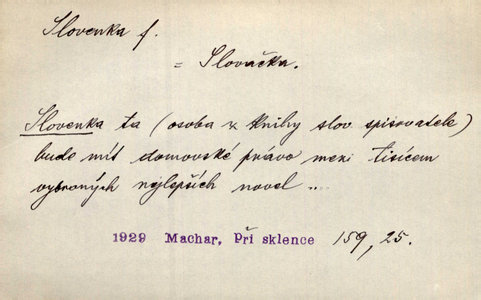 Slovenka f.
= Slovačka.
Slovenka ta (osoba z knihy slov. spisovatele)
bude mít domovské právo mezi tisícem
vybraných nejlepších novel ...
1929 Machar, Při sklence 159, 25.